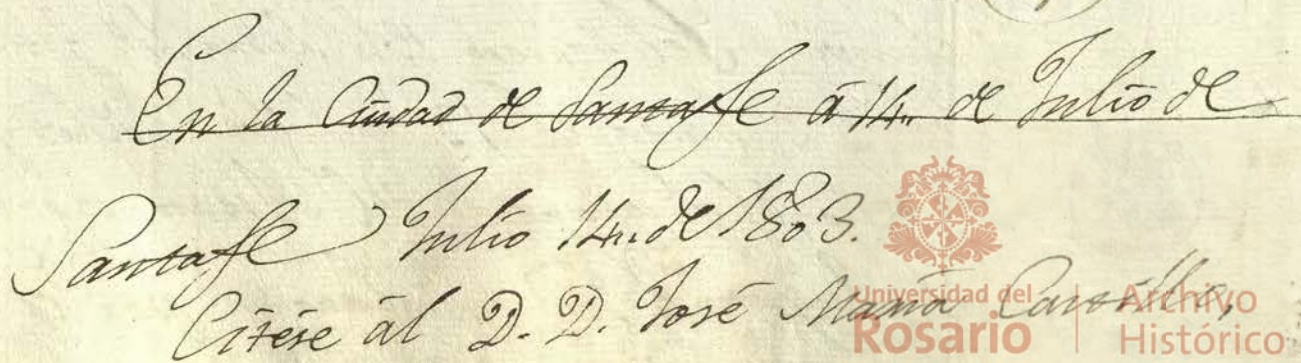 En la Ciudad de Santafe á 14,, de Julio de
Santafe Julio 14,, de 1803.
Citése ál D. D. José Maria
Universidad del
Rosario | Archivo
Histórico